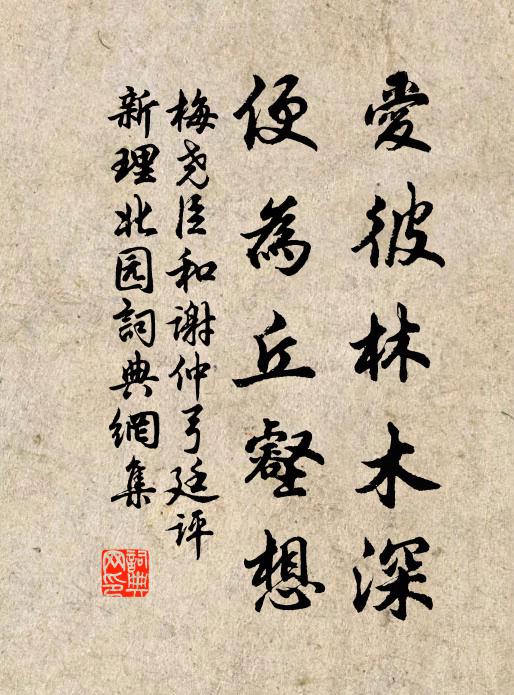 愛彼林木深
便為丘壑想
梅尧臣和谢仲弓廷评
新理北园詞典網集
詞典网印